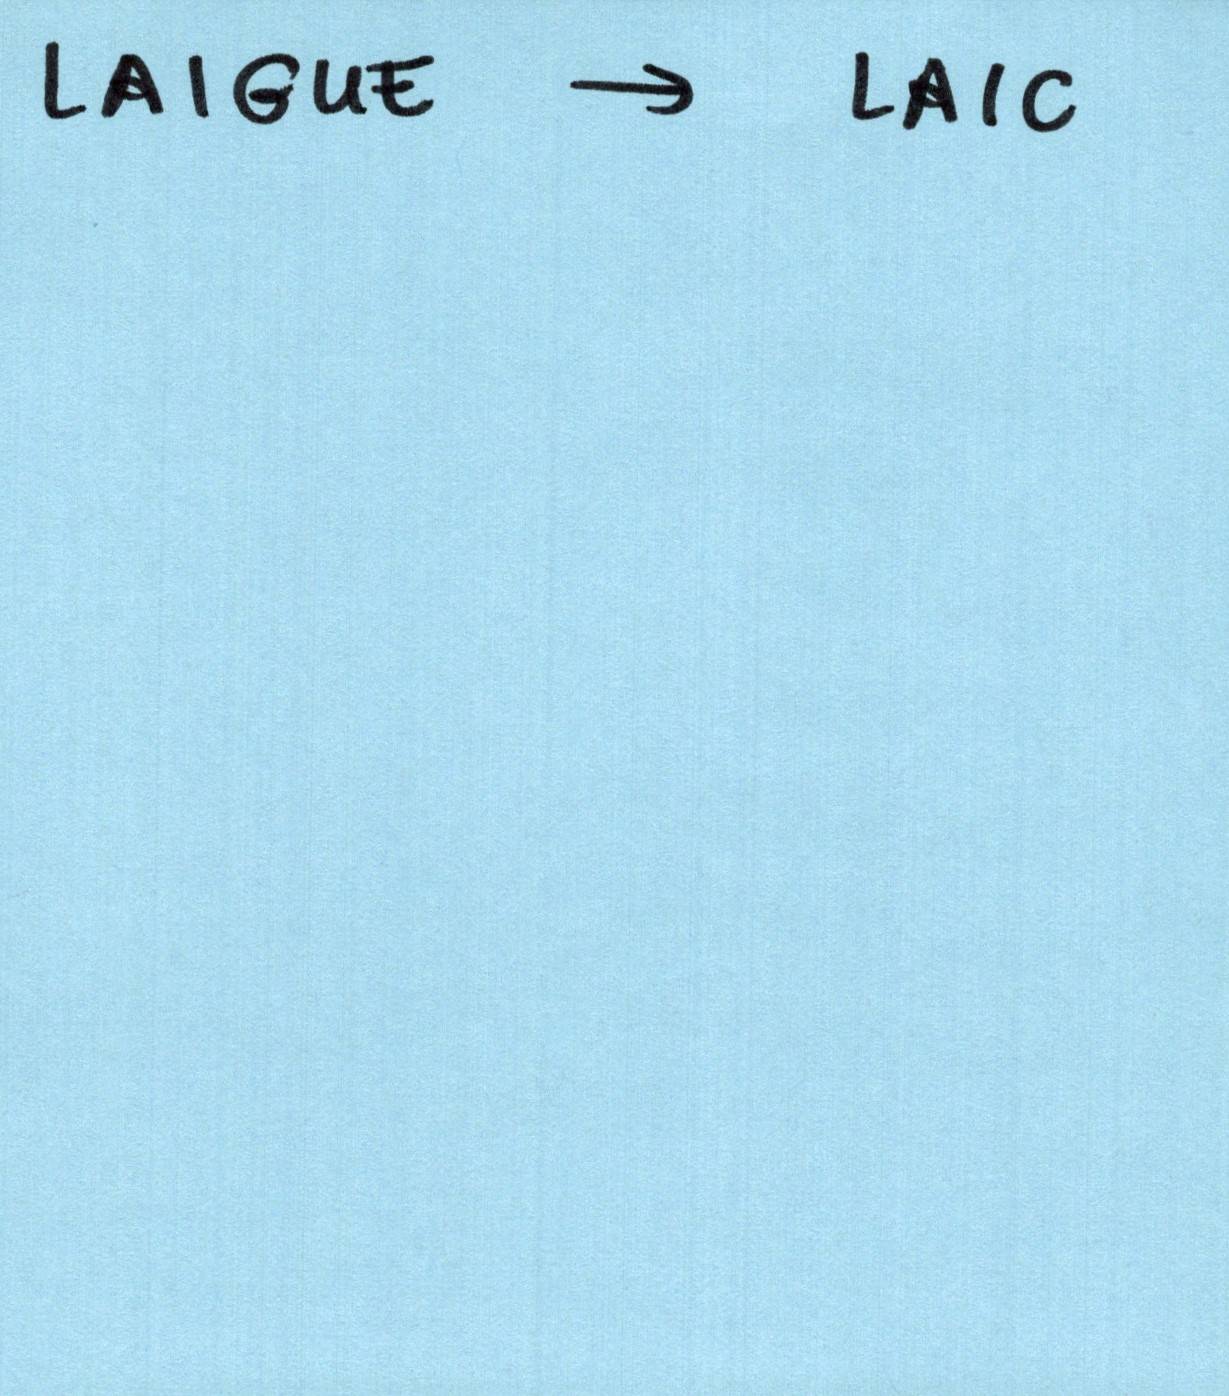 LAIGUE → LAIC